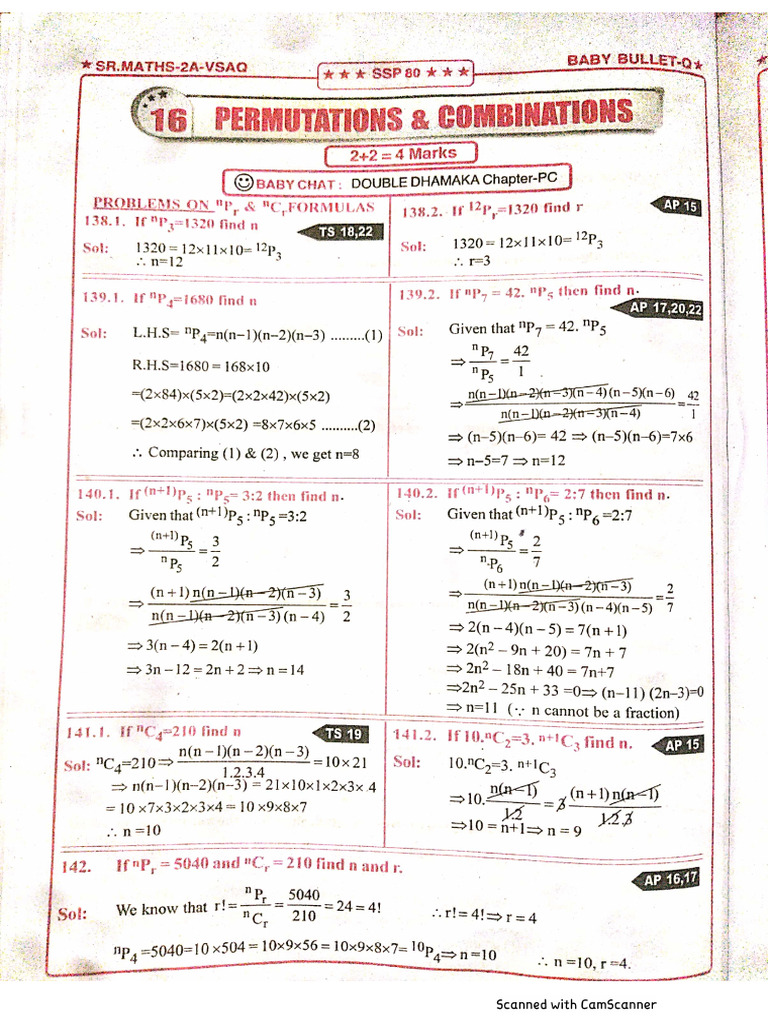 ★ SR.MATHS-2A-VSAQ
★ ★ ★ SSP 80 ★ ★ ★
BABY BULLET-Q ★
16 PERMUTATIONS & COMBINATIONS
2+2 = 4 Marks
☺ BABY CHAT : DOUBLE DHAMAKA Chapter-PC
PROBLEMS ON ⁿPᵣ & ⁿCᵣ FORMULAS
138.1. If ⁿP₃=1320 find n
TS 18,22
Sol: 1320 = 12×11×10= ¹²P₃
∴ n=12
138.2. If ¹²Pᵣ=1320 find r
AP 15
Sol: 1320 = 12×11×10= ¹²P₃
∴ r=3
139.1. If ⁿP₄=1680 find n
Sol: L.H.S= ⁿP₄=n(n−1)(n−2)(n−3) .........(1)
R.H.S=1680 = 168×10
=(2×84)×(5×2)=(2×2×42)×(5×2)
=(2×2×6×7)×(5×2) =8×7×6×5 ..........(2)
∴ Comparing (1) & (2) , we get n=8
139.2. If ⁿP₇ = 42. ⁿP₅ then find n.
AP 17,20,22
Sol: Given that ⁿP₇ = 42. ⁿP₅
⇒ ⁿP₇/ⁿP₅ = 42/1
⇒ n(n−1)(n−2)(n−3)(n−4)(n−5)(n−6)/n(n−1)(n−2)(n−3)(n−4) = 42/1
⇒ (n−5)(n−6)= 42 ⇒ (n−5)(n−6)=7×6
⇒ n−5=7 ⇒ n=12
140.1. If ⁽ⁿ⁺¹⁾P₅ : ⁿP₅= 3:2 then find n.
Sol: Given that ⁽ⁿ⁺¹⁾P₅ : ⁿP₅ =3:2
⇒ ⁽ⁿ⁺¹⁾P₅/ⁿP₅ = 3/2
⇒ (n+1)n(n−1)(n−2)(n−3)/n(n−1)(n−2)(n−3)(n−4) = 3/2
⇒ 3(n−4) = 2(n+1)
⇒ 3n−12 = 2n+2 ⇒ n = 14
140.2. If ⁽ⁿ⁺¹⁾P₅ : ⁿP₆= 2:7 then find n.
Sol: Given that ⁽ⁿ⁺¹⁾P₅ : ⁿP₆ =2:7
⇒ ⁽ⁿ⁺¹⁾P₅/ⁿ·P₆ = 2/7
⇒ (n+1)n(n−1)(n−2)(n−3)/n(n−1)(n−2)(n−3)(n−4)(n−5) = 2/7
⇒ 2(n−4)(n−5) = 7(n+1)
⇒ 2(n² − 9n + 20) = 7n + 7
⇒ 2n² − 18n + 40 = 7n+7
⇒2n² − 25n + 33 =0⇒ (n−11) (2n−3)=0
⇒ n=11 (∵ n cannot be a fraction)
141.1. If ⁿC₄=210 find n
TS 19
Sol: ⁿC₄=210⇒ n(n−1)(n−2)(n−3)/1.2.3.4 =10×21
⇒ n(n−1)(n−2)(n−3) = 21×10×1×2×3×.4
= 10 ×7×3×2×3×4 = 10 ×9×8×7
∴ n =10
141.2. If 10.ⁿC₂=3. ⁿ⁺¹C₃ find n.
AP 15
Sol: 10.ⁿC₂=3. ⁿ⁺¹C₃
⇒10. n(n−1)/1.2 = 3 (n+1)n(n−1)/1.2.3
⇒10 = n+1⇒ n = 9
142. If ⁿPᵣ = 5040 and ⁿCᵣ = 210 find n and r.
AP 16,17
Sol: We know that r!= ⁿPᵣ/ⁿCᵣ = 5040/210 = 24 = 4! ∴ r! = 4!⇒ r = 4
ⁿP₄ =5040=10 ×504 = 10×9×56 = 10×9×8×7= ¹⁰P₄⇒ n =10 ∴ n =10, r =4.
Scanned with CamScanner